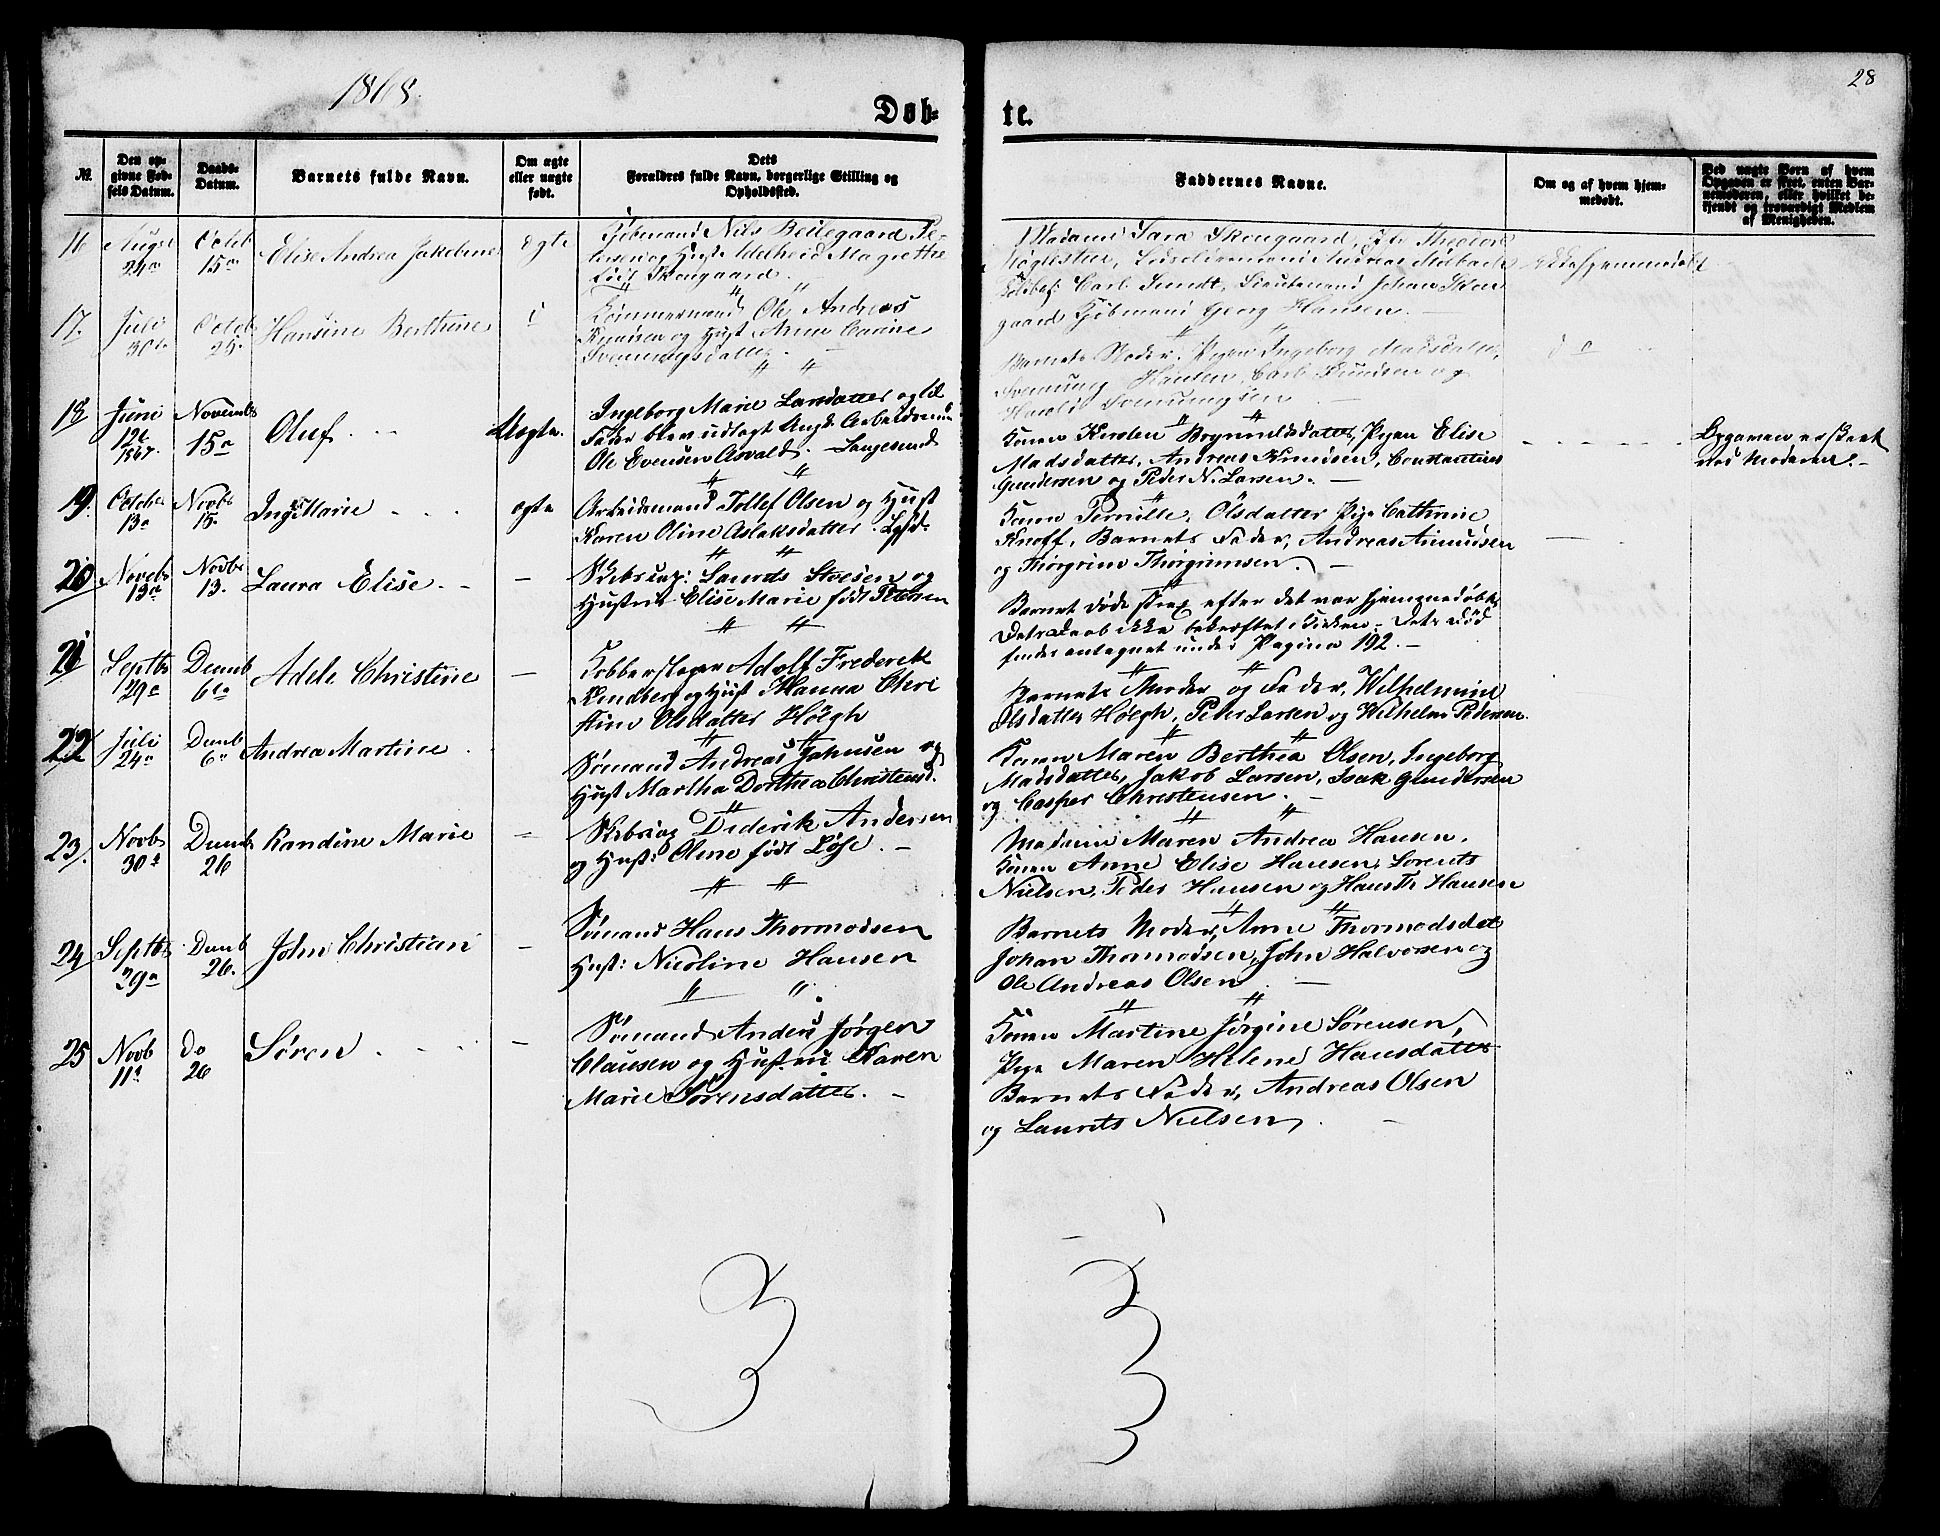 1868.
28
Døb-
te.
№.
Den op-
givne Fød-
sels Datum.
Daabs-
Datum.
Barnets fulde Navn.
Om ægte
eller uægte
født.
Dets
Forældres fulde Navn, borgerlige Stilling og
Opholdssted.
Faddernes Navne.
Om og af hvem hjem-
medøbt.
Ved uægte Børn af hvem
Opgaven er skeet, enten Bar-
nemoderen, eller hvilket be-
kjendt og troværdigt Medlem
af Menigheden.
16
August
24de
Octob
15de
Elise Andrea Jakobine
ægte
Kjøbmand Nils Beilegaard Pe-
tersen og Hust Adelheid Magrethe
født Skougaard.
Madame Sara Skougaard, Theodore
Carl Sundt, Lieutenand Johan Skou
gaard Kjøbmand Georg Hansen. —
17.
Juli
30te
Octob
25.
Hansine Berthine
Tømmermand Ole Andreas
Knudsen og Hust Anne Carine
Svenningsdatter. —
Barnets Moder, Pigen Ingeborg Madsdatter,
Hansen, Carl Knudsen og
do
18
Juni
12te
1867.
Novemb
15de
Oluf.
Uægte.
Ingeborg Marie Larsdatter og til
Fader blev udlagt Ungk Arbeidsmand
Ole Evensen Asvald. — Langesund
Konen Kirsten Brynnildsdatter, Pigen Elise
Madsdatter, Andreas Knudsen, Constantius
Gundersen og Peder N. Larsen. —
Opgaven er skeet
ved Moderen. —
19.
October
13de
Novbr
15.
Inge Marie
ægte
Arbeidsmand Tollef Olsen og Hust
Karen Oline Aslaksdatter.
Konen Pernille Olsdatter Pige Cathrine
Knoff, Barnets Fader, Andreas Amundsen
og Thorgrim Thorgrimsen. —
20
Novebr
13de
Novbr
13.
Laura Elise. —
—
Skibscap: Lauids Stoesen og
Hustru Elise Marie født Petersen
Barnet døde strax efter det var hjemmedøbt.
Dets Daab ikke bekræftet i Kirken. Dets Død
findes antegnet under Pagina 192. —
21
Septbr
29de
Decemb
6te
Adele Christine
—
Kobberslager Adolf Frederik
Lindberg og Hust Hanna Chri
stine Olsdatter Høegh
Barnets Moder og Fader, Wilhelmine
Olsdatter Høegh, Peder Larsen og Wilhelm Pedersen.
22
Juli
24de
Decemb
6te
Andrea Martine
Sømand Andreas Johnsen og
Hust Martha Dorthea Christensd.
Konen Maren Berthea Olsen, Ingeborg
Madsdatter, Jakob Larsen, Isak Gundersen
og Casper Christensen. —
23.
Novbr
30te
Decemb
26
Randine Marie
—
Skibscap Diderik Andersen
og Hust: Oline født Løse. —
Madame Maren Andrea Hansen,
Konen Anne Elise Hansen, Lorents
Nielsen, Peder Hansen og Hans Th Hansen
24
Septbr
29de
Decemb
26.
John Christian
—
Sømand Hans Thormodsen
Hust: Nicoline Hansen
Barnets Moder, Anne Thormodsdat
Johan Thormodsen, John Halvorsen og
Ole Andreas Olsen —
25
Novb
11te
Do
26
Søren
—
Sømand Anders Jørgen
Clausen og Hustru Karen
Marie Sørensdatter. —
Konen Martine Jørgine Sørensen,
Pige Maren Helene Hansdatter
Barnets Fader, Andreas Olsen
og Laurits Nielsen.